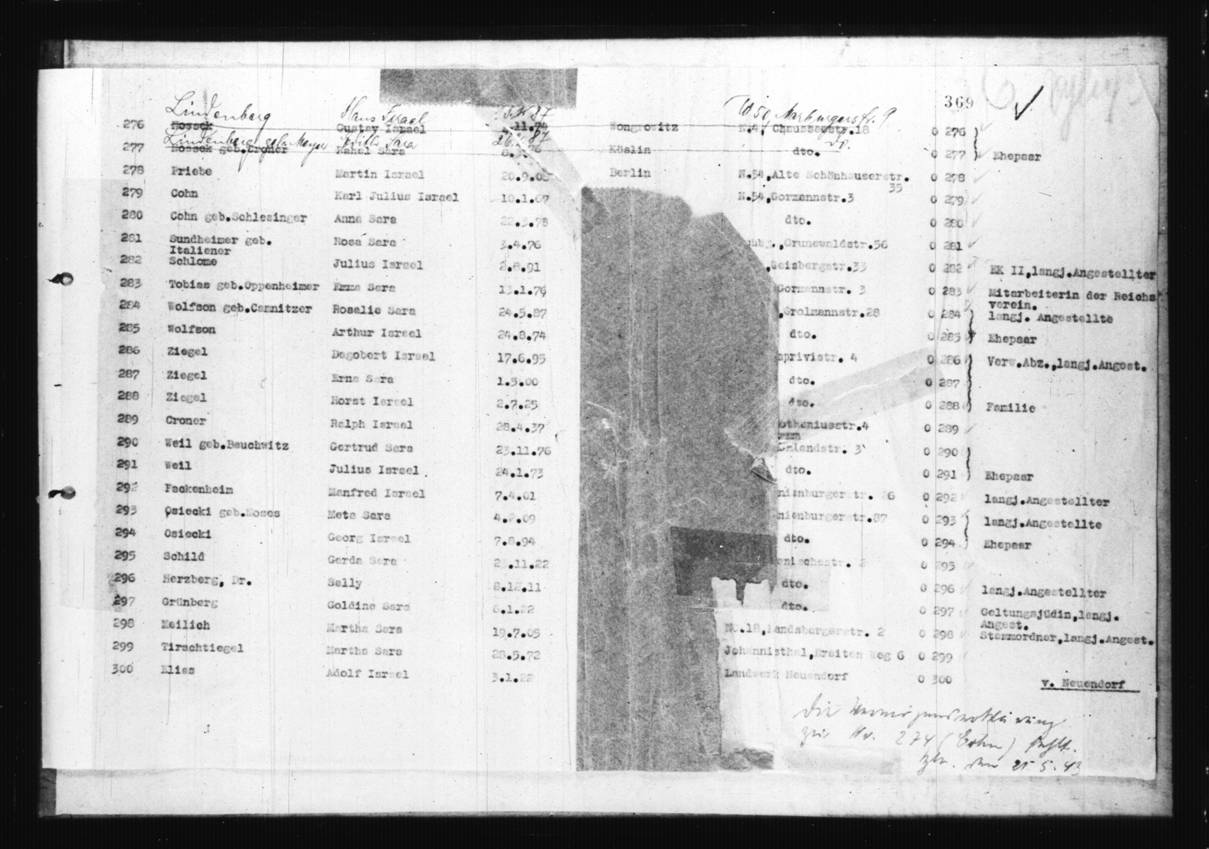 369
Lindenberg Hans Israel W 50, Marburgerstr. 9
276 Mosseck Gustav Israel 11.74 Wongrowitz N.4, Chausseestr.18 0 276
Lindenberg geb. Meyer Sara
277 Mosseck geb.Croner Rahel Sara Köslin dto. 0 277 Ehepaar
278 Priebe Martin Israel 20.9.05 Berlin N.54, Alte Schönhauserstr. 35 0 278
279 Cohn Karl Julius Israel 10.1.07 N.54, Gormannstr.3 0 279
280 Cohn geb.Schlesinger Anna Sara 22.3.78 dto. 0 280
281 Sundheimer geb. Italiener Rosa Sara 3.4.76 Grunewaldstr.56 0 281
282 Schlome Julius Israel 2.8.91 Geisbergstr.33 0 282 EK II, langj.Angestellter
283 Tobias geb.Oppenheimer Emma Sara 13.1.79 Gormannstr. 3 0 283 Mitarbeiterin der Reichs verein.
284 Wolfson geb.Carnitzer Rosalie Sara 24.5.87 Grolmannstr.28 0 284 langj. Angestellte
285 Wolfson Arthur Israel 24.8.74 dto. 0 285 Ehepaar
286 Ziegel Dagobert Israel 17.6.95 privistr. 4 0 286 Verw.Abz., langj.Angest.
287 Ziegel Erna Sara 1.5.00 dto. 0 287
288 Ziegel Horst Israel 2.7.25 dto. 0 288 Familie
289 Croner Ralph Israel 28.4.37 otheniusstr.4 0 289
290 Weil geb.Bauchwitz Gertrud Sara 23.11.76 landstr. 3 0 290
291 Weil Julius Israel 24.1.73 dto. 0 291 Ehepaar
292 Packenheim Manfred Israel 7.4.01 nienburgerstr. 26 0 292 langj.Angestellter
293 Osiecki geb.Moses Meta Sara 4.2.09 nienburgerstr.87 0 293 langj.Angestellte
294 Osiecki Georg Israel 7.8.94 dto. 0 294 Ehepaar
295 Schild Gerda Sara 11.22 0 295
296 Herzberg, Dr. Selly 8.12.11 dto. 0 296 langj.Angestellter
297 Grünberg Goldine Sara 6.1.22 dto. 0 297 Geltungsjüdin, langj. Angest.
298 Meilich Martha Sara 19.7.05 No.18, Landsbergerstr. 2 0 298 Sternordner, langj.Angest.
299 Tirschtiegel Martha Sara 28.5.72 Johannisthal, Breiten Weg 6 0 299
300 Elias Adolf Israel 3.1.22 Landwerk Neuendorf 0 300 v. Neuendorf
Die Vermögenserklärung
zu Nr. 274 (Cohn) fehlt.
den 21.5.43